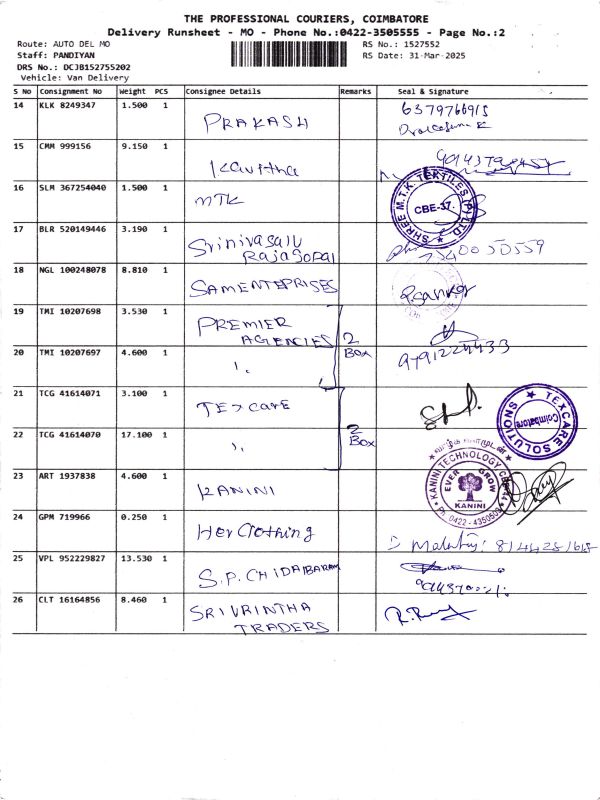 THE PROFESSIONAL COURIERS, COIMBATORE
Delivery Runsheet - MO - Phone No.:0422-3505555 - Page No.:2
Route: AUTO DEL MO RS No.: 1527552
Staff: PANDIYAN RS Date: 31-Mar-2025
DRS No.: DCJB152755202
Vehicle: Van Delivery
S No Consignment No Weight PCS Consignee Details Remarks Seal & Signature
14 KLK 8249347 1.500 1 PRAKASH 6379766915
15 CMM 999156 9.150 1 Kavitha
16 SLM 367254040 1.500 1 MTK
SHREE M.T.K TEXTILES (P) LTD. CBE-37.
17 BLR 520149446 3.190 1 Srinivasalu
Rajagopal
18 NGL 100248078 8.810 1 SAMENTEPRISES
19 TMI 10207698 3.530 1 PREMIER
AGENCIES
2
Box
20 TMI 10207697 4.600 1 9791224433
21 TCG 41614071 3.100 1 TEXCARE
TEXCARE SOLUTIONS Coimbatore
2
Box
22 TCG 41614070 17.100 1
வாழ்க வளமுடன்
23 ART 1937838 4.600 1 KANINI
KANINI TECHNOLOGY
EVER GROW
KANINI
Ph: 0422 - 4350509
24 GPM 719966 0.250 1 Her Clothing
25 VPL 952229827 13.530 1 S.P. CHIDAMBARAM
26 CLT 16164856 8.460 1 SRIVRINTHA
TRADERS